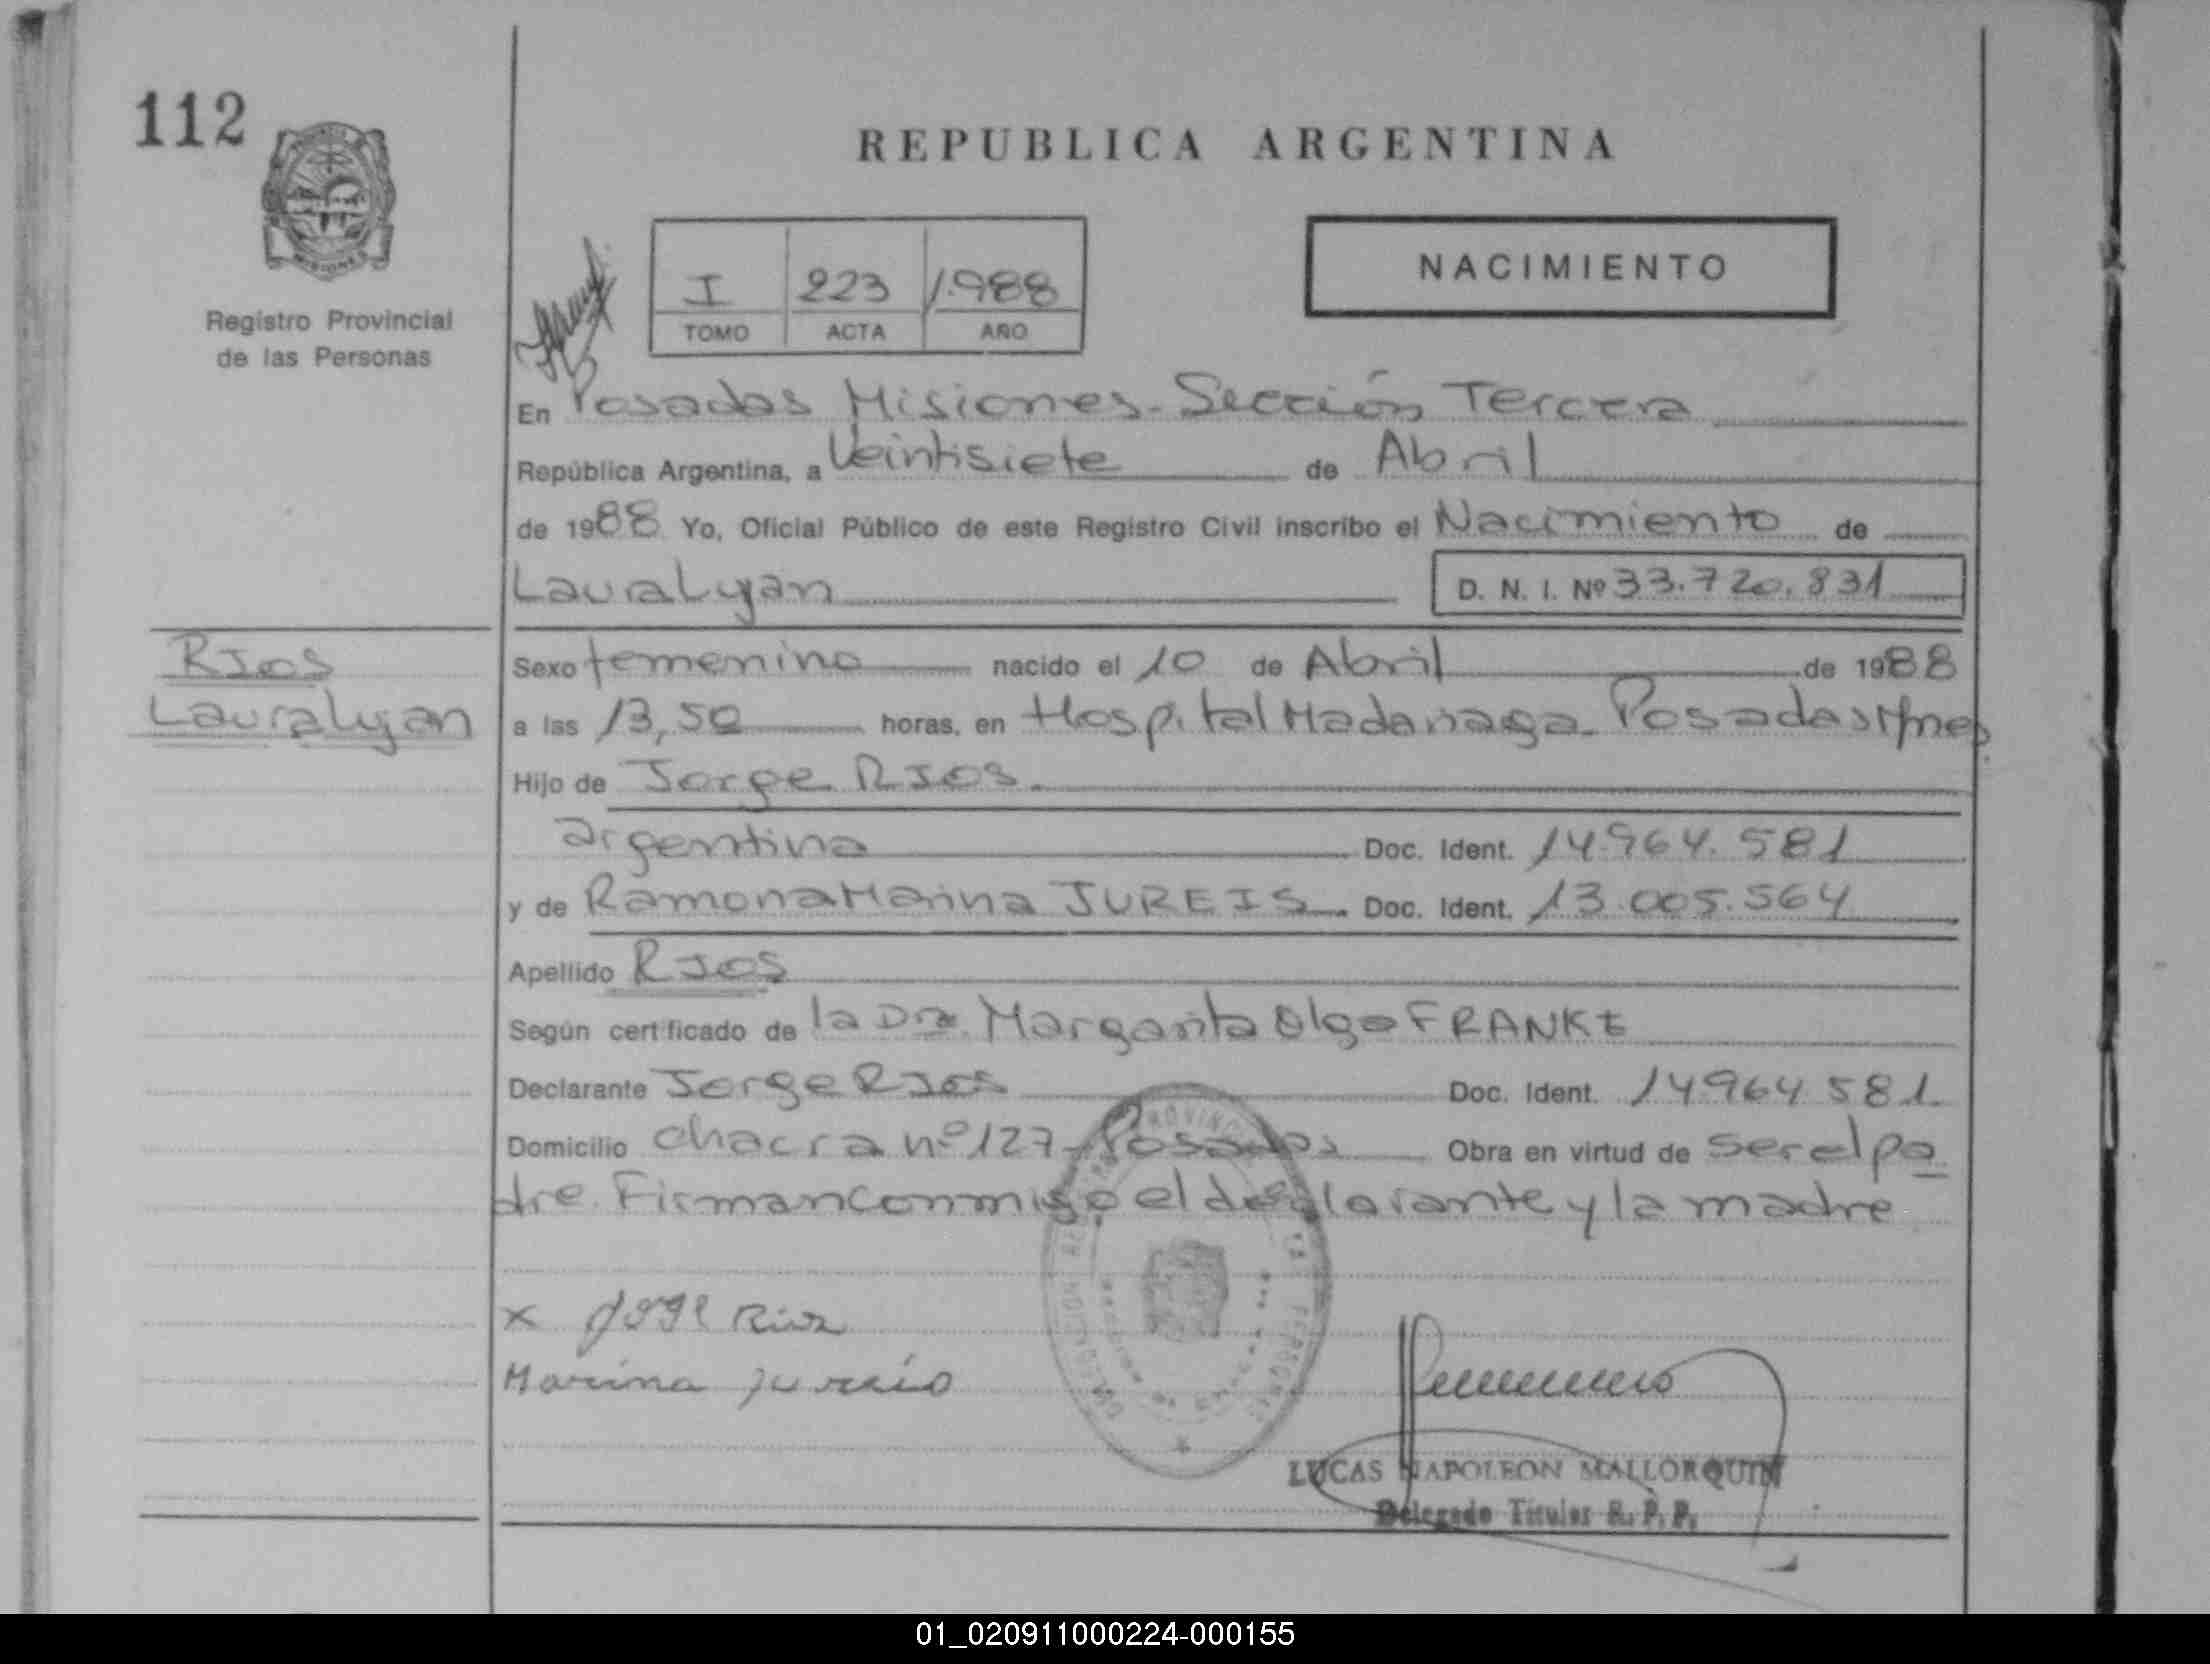 112
REPUBLICA ARGENTINA
MISIONES
Registro Provincial
de las Personas
I 223 1.988
TOMO ACTA AÑO
NACIMIENTO
En Posadas Misiones - Sección Tercera
República Argentina, a Veintisiete de Abril
de 1988 Yo, Oficial Público de este Registro Civil inscribo el Nacimiento de
Laura Lyan
D. N. I. Nº 33.720.831
RIOS
Laura Lyan
Sexo femenino nacido el 10 de Abril de 1988
a las 13,50 horas, en Hospital Madariaga - Posadas Mnes
Hijo de Jorge RIOS.
argentina Doc. Ident. 14.964.581
y de Ramona Marina JUREIS. Doc. Ident. 13.005.564
Apellido RIOS
Según certificado de la Dra. Margarita Olga FRANKE
Declarante Jorge RIOS Doc. Ident. 14.964.581.
Domicilio chacra nº 127 - Posadas Obra en virtud de ser el pa
dre. Firman conmigo el declarante y la madre
x Jorge Rios
Marina
LUCAS NAPOLEON MALLORQUIN
Delegado Titular R. P. P.
01_020911000224-000155